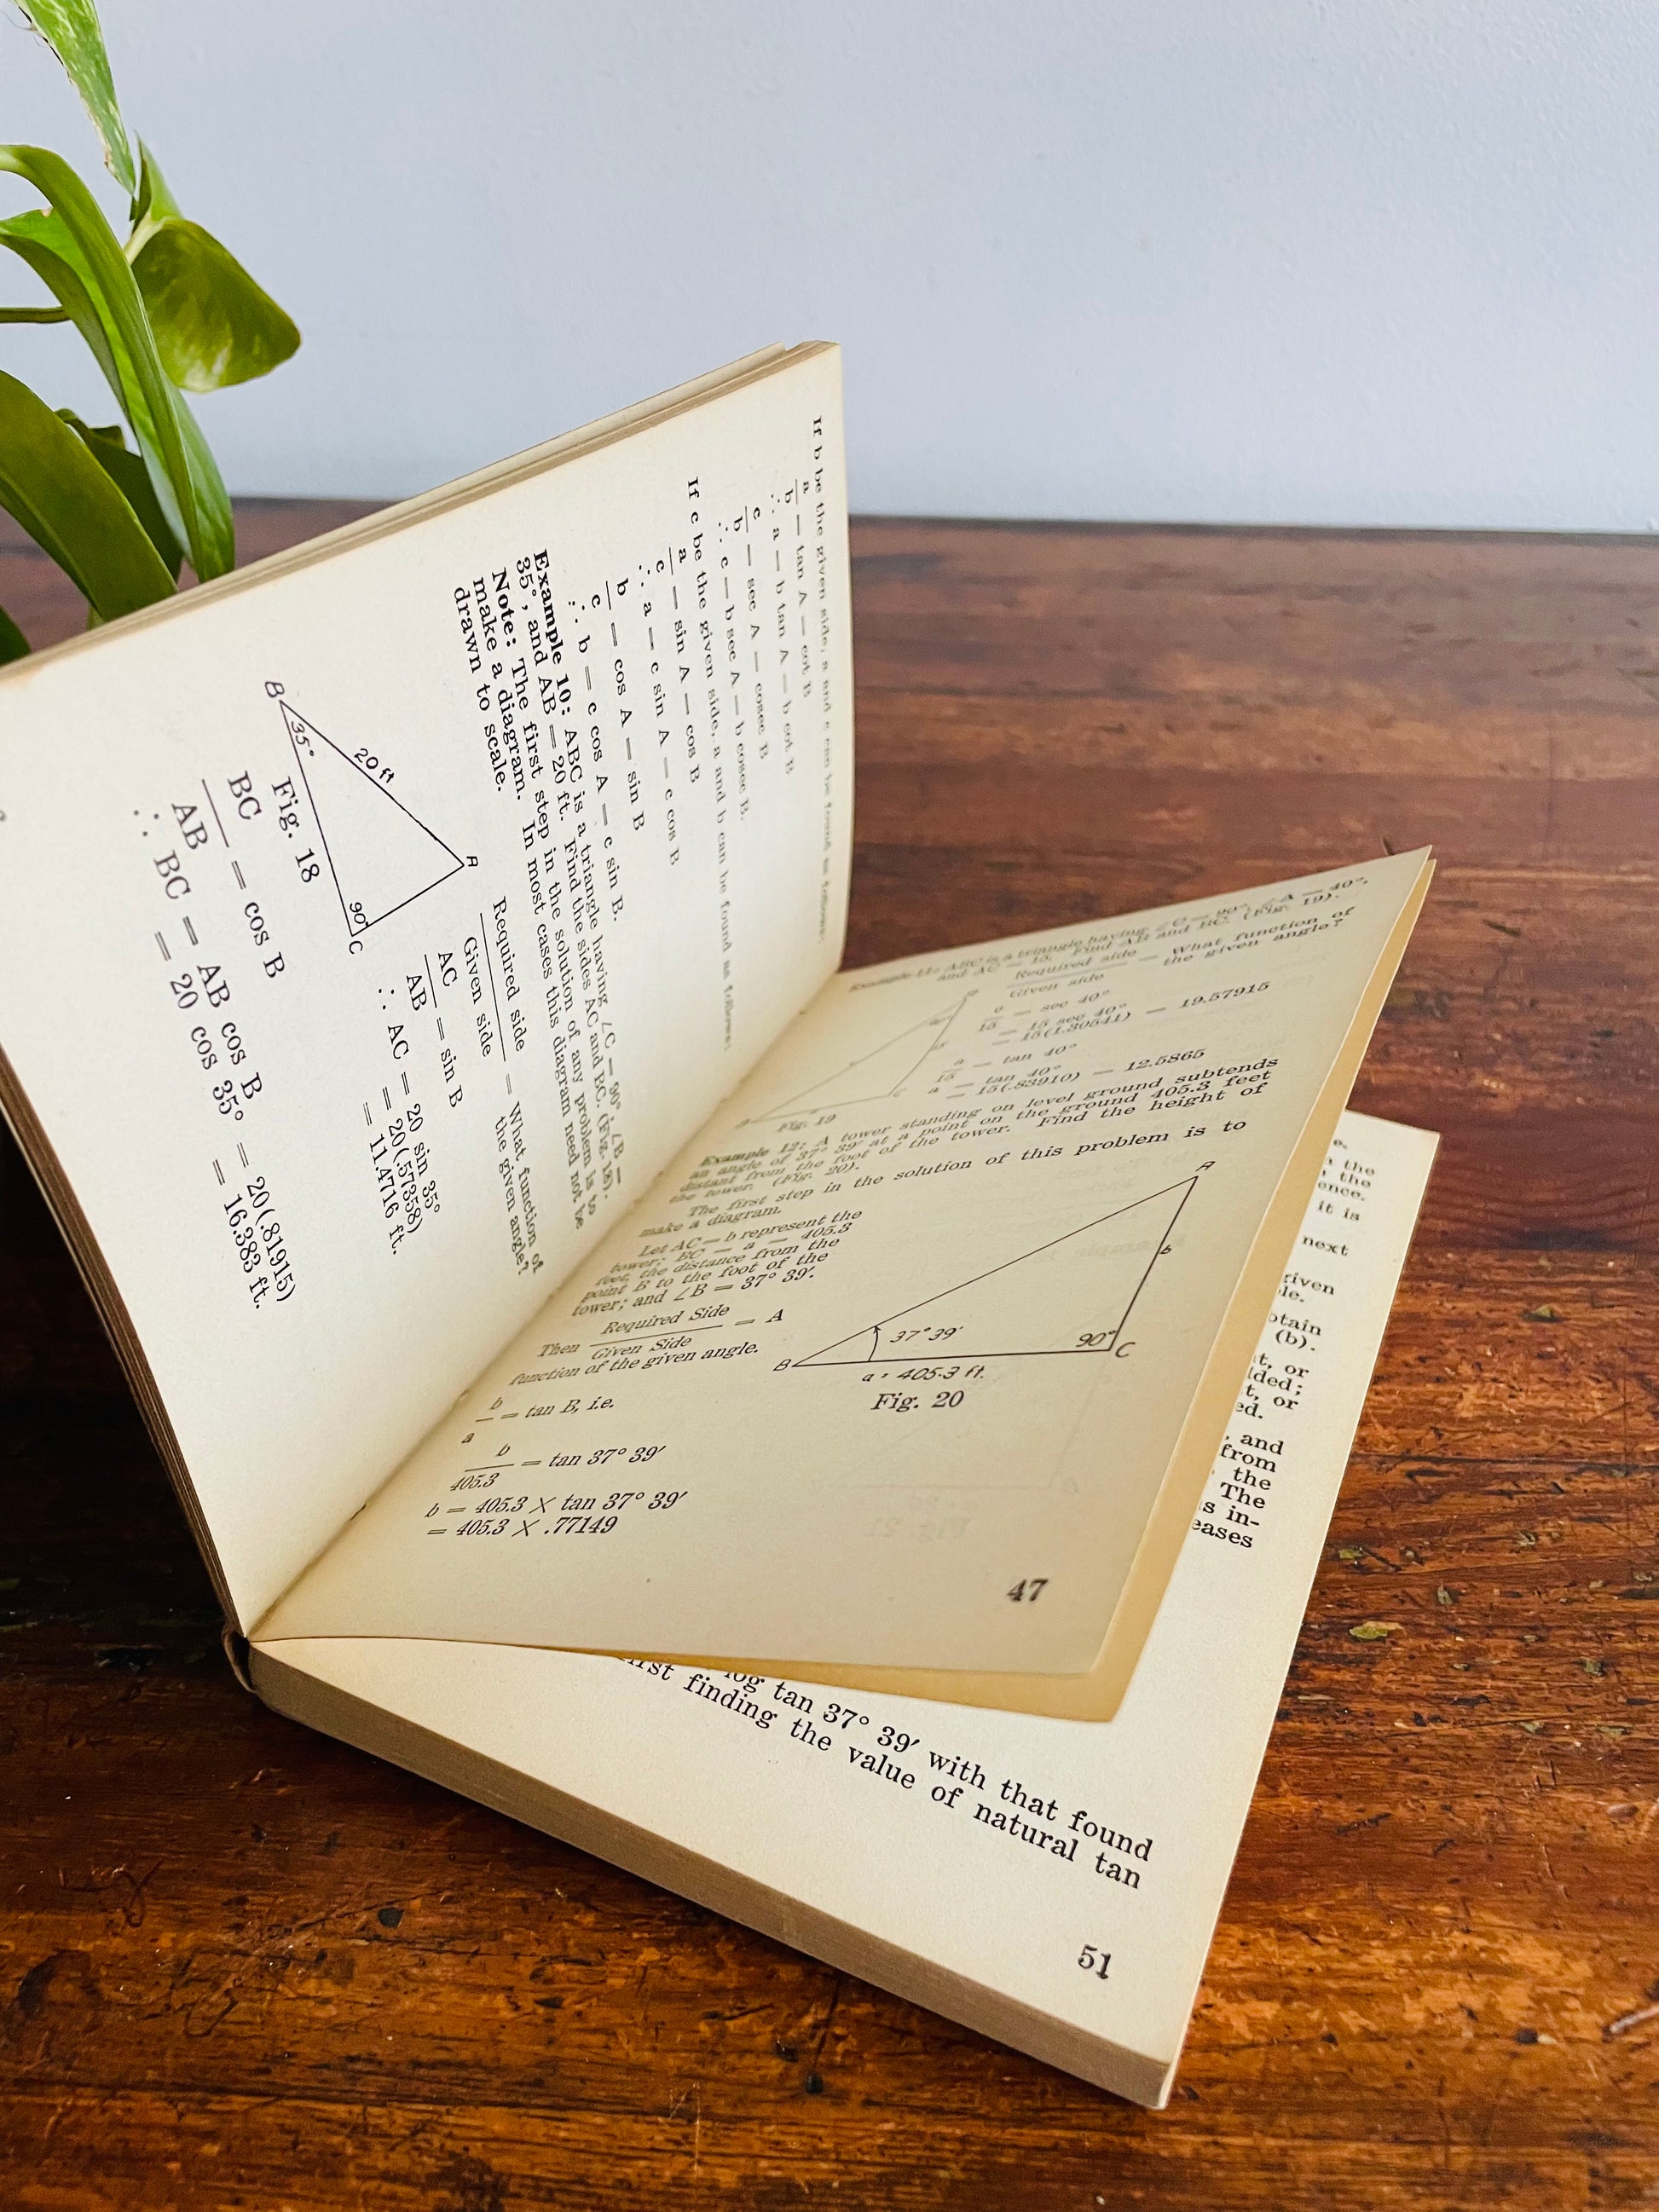 If b be the given side, a and c can be found as follows:
a
b = tan A = cot B
∴ a = b tan A = b cot B
c
b = sec A = cosec B
∴ c = b sec A = b cosec B.
If c be the given side, a and b can be found as follows:
a
c = sin A = cos B
∴ a = c sin A = c cos B
b
c = cos A = sin B
∴ b = c cos A = c sin B.
Example 10: ABC is a triangle having ∠C = 90°, ∠B =
35°, and AB = 20 ft. Find the sides AC and BC. (Fig. 18).
Note: The first step in the solution of any problem is to
make a diagram. In most cases this diagram need not be
drawn to scale.
A
20 ft
B
35°
90°
C
Fig. 18
Required side
Given side
= What function of
the given angle?
AC
AB = sin B
∴ AC = 20 sin 35°
= 20(.57358)
= 11.4716 ft.
BC
AB = cos B
∴ BC = AB cos B
= 20 cos 35° = 20(.81915)
= 16.383 ft.
Example 11: ABC is a triangle having ∠C = 90°, ∠A = 40°,
and AC = 15. Find AB and BC. (Fig. 19).
Required side
Given side
= What function of
the given angle?
c
15 = sec 40°
= 15 sec 40°
= 15(1.30541) = 19.57915
a
15 = tan 40°
a = tan 40°
= 15(.83910) = 12.5865
Fig. 19
Example 12: A tower standing on level ground subtends
an angle of 37° 39' at a point on the ground 405.3 feet
distant from the foot of the tower. Find the height of
the tower. (Fig. 20).
The first step in the solution of this problem is to
make a diagram.
Let AC = b represent the
tower; BC = a = 405.3
feet, the distance from the
point B to the foot of the
tower; and ∠B = 37° 39'.
Then Required Side
Given Side
= A
function of the given angle.
b
a = tan B, i.e.
b
405.3 = tan 37° 39'
b = 405.3 × tan 37° 39'
= 405.3 × .77149
A
b
37° 39'
90°
B
C
a = 405.3 ft.
Fig. 20
47
e.
the
the
ence.
it is
next
given
le.
btain
(b).
t, or
lded;
t, or
ed.
, and
from
the
The
s in-
eases
log tan 37° 39' with that found
first finding the value of natural tan
51